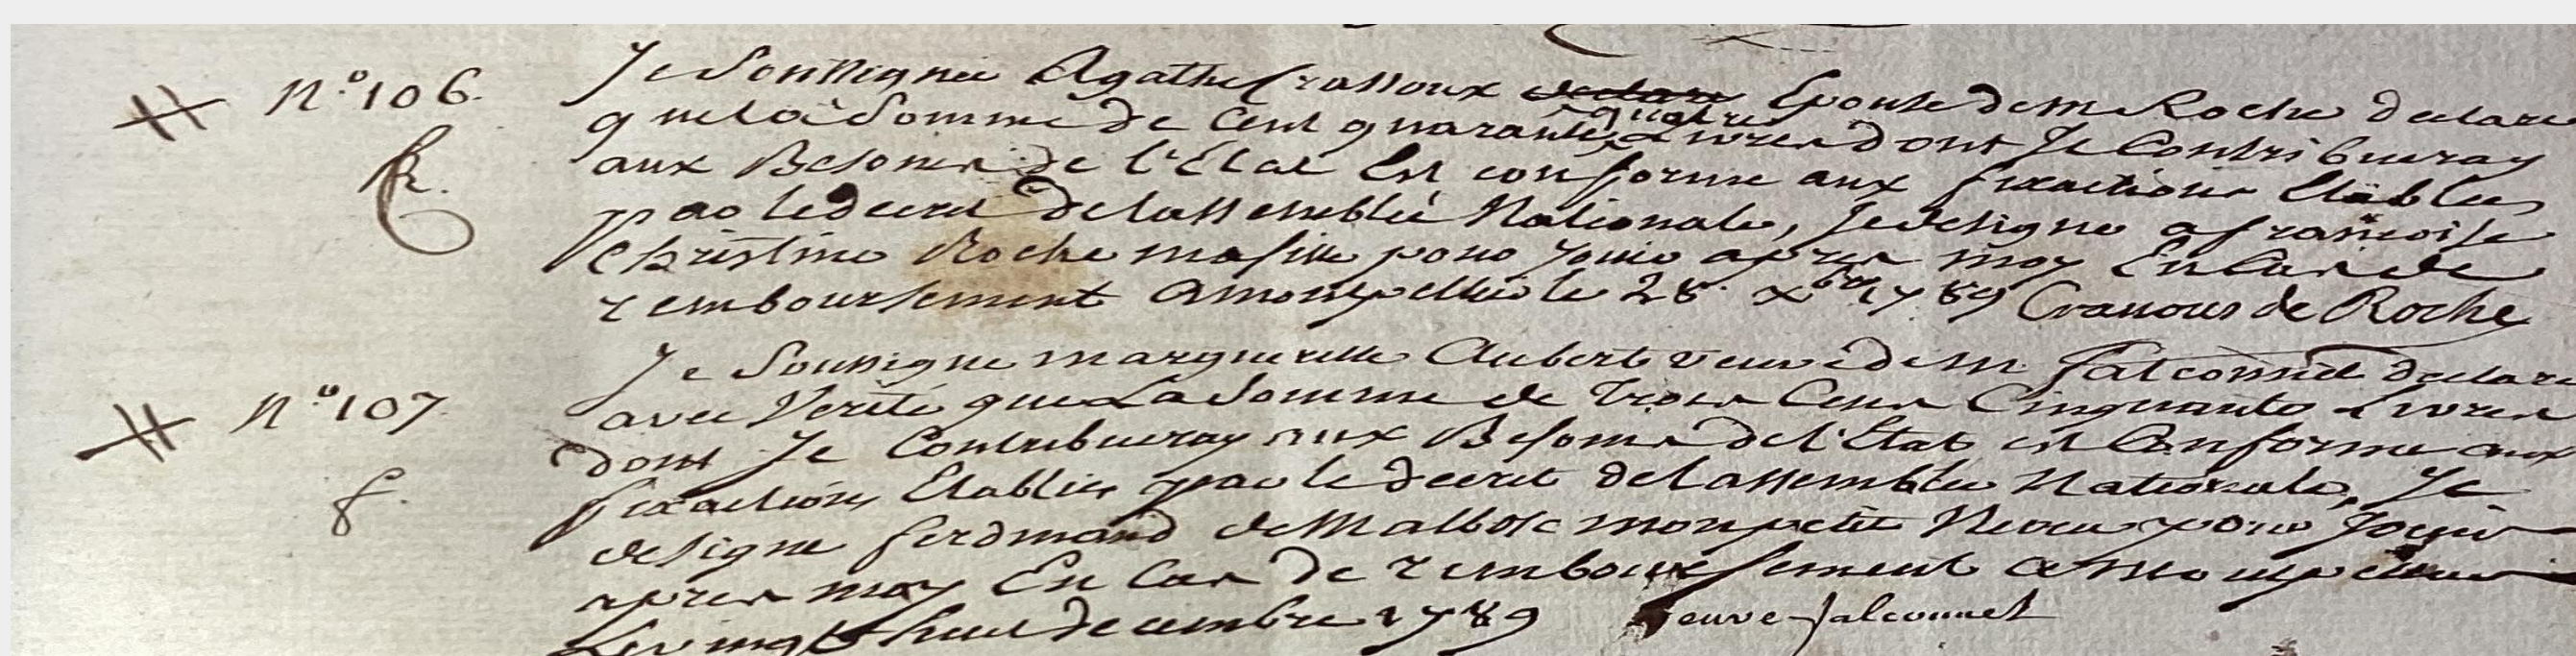 N.o 106. Je Soussignée Agathe Crassoux declare Epouse de m Roche declare
que la Somme de Cent quarante quatre Livres dont Je Contribueray
R. aux Besoins de l'Etat Est conforme aux fixactions Etablies
par le decret de lassemblée Nationale, Je designe a françoise
Christine Roche ma fille pour Jouir apres moy En Cas de
remboursement a montpellier le 28. xbre 1789 Crassous de Roche
N.o 107. Je Soussigne margueritte Aubert veuve de m. falconnet declare
avec Verité que La Somme de Trois Cens Cinquante Livres
dont Je Contribueray aux Besoins de l'Etat est Conforme aux
f. fixactions Etablies par le decret de lassemblée Nationale, Je
designe ferdinand de Malbosc mon petit Neveu pour Jouir
apres moy En Cas de remboursement a Montpellier
Le vingt huit decembre 1789 veuve falconnet